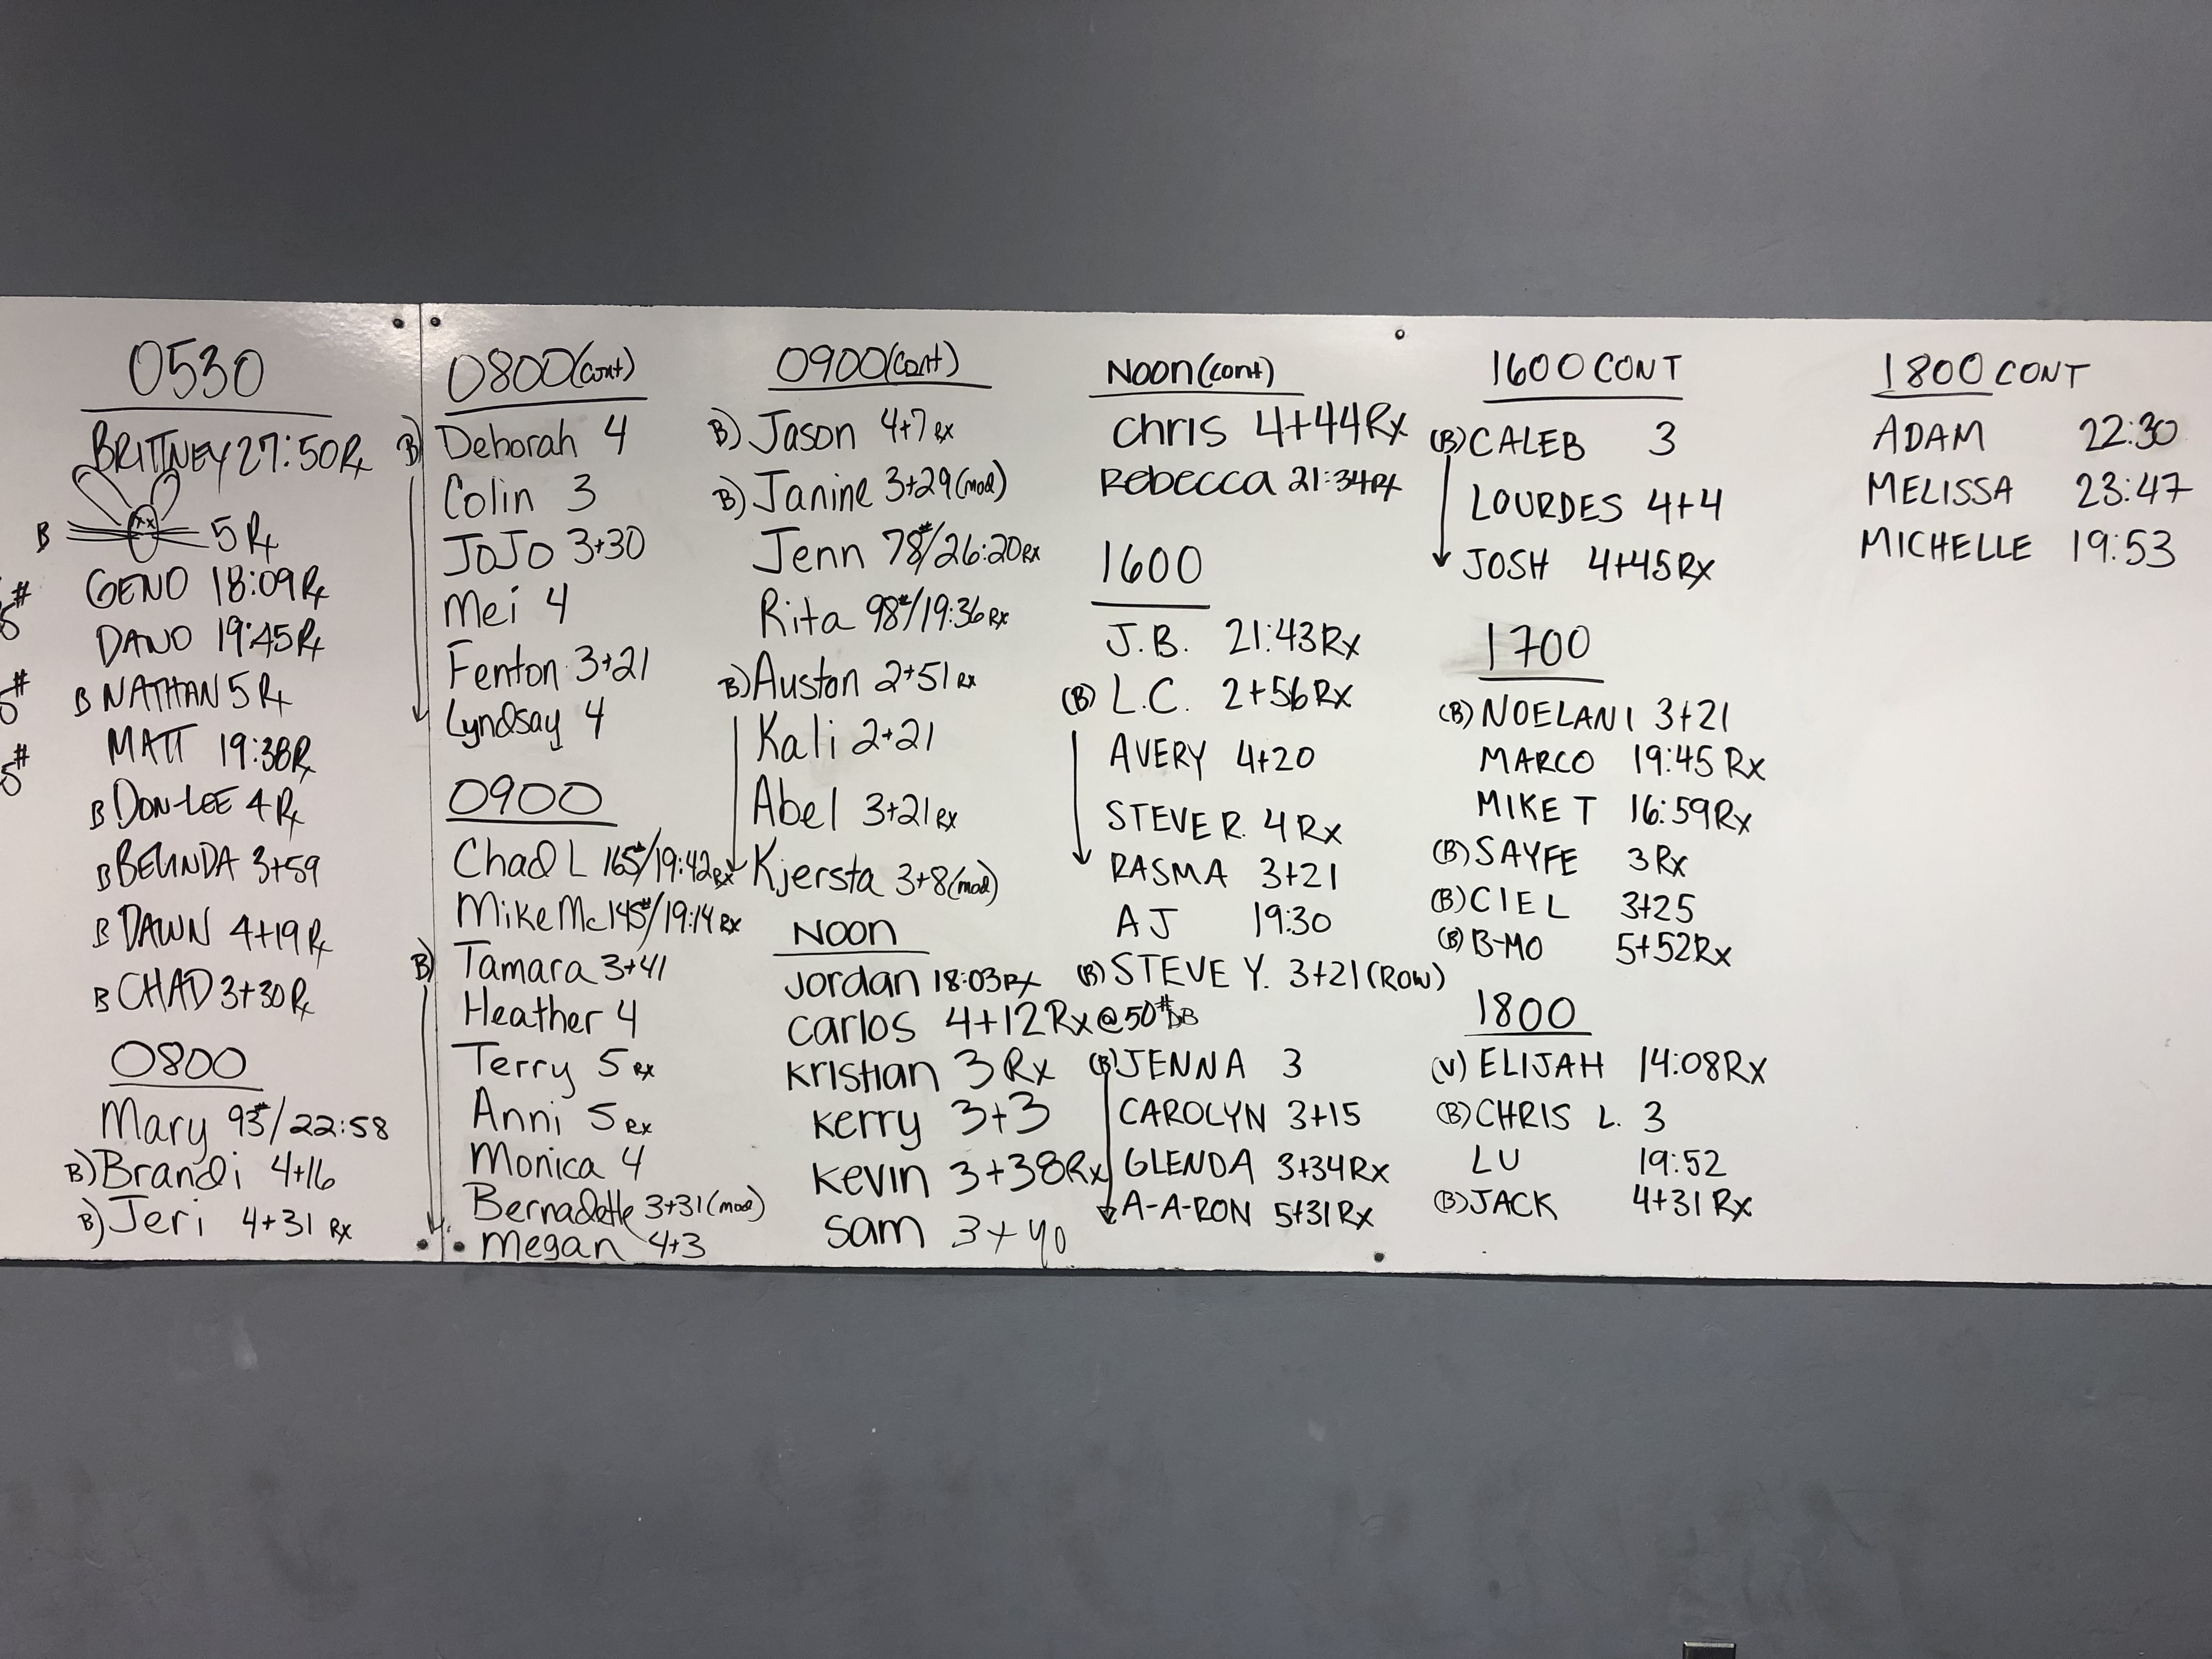 0530
BRITTNEY 27:50 Rx
B 5 Rx
GENO 18:09 Rx
#
DANO 19:45 Rx
5
#
B NATHAN 5 Rx
5
MATT 19:38 Rx
#
5
B DON-LEE 4 Rx
B BELINDA 3+59
B DAWN 4+19 Rx
B CHAD 3+30 Rx
0800
Mary 93#/22:58
B) Brandi 4+16
B) Jeri 4+31 Rx
0800 (cont)
B) Deborah 4
Colin 3
JoJo 3+30
Mei 4
Fenton 3+21
Lyndsay 4
0900
Chad L 165#/19:42 Rx
Mike Mc 145#/19:14 Rx
B) Tamara 3+41
Heather 4
Terry 5 Rx
Anni 5 Rx
Monica 4
Bernadette 3+31 (mod)
Megan 4+3
0900 (cont)
B) Jason 4+7 Rx
B) Janine 3+29 (mod)
Jenn 78#/26:20 Rx
Rita 98#/19:36 Rx
B) Auston 2+51 Rx
Kali 2+21
Abel 3+21 Rx
Kjersta 3+8 (mod)
NOON
Jordan 18:03 Rx
Carlos 4+12 Rx @ 50# DB
Kristian 3 Rx
Kerry 3+3
Kevin 3+38 Rx
Sam 3+40
NOON (cont)
Chris 4+44 Rx
Rebecca 21:34 Rx
1600
J.B. 21:43 Rx
(B) L.C. 2+56 Rx
AVERY 4+20
STEVE R. 4 Rx
RASMA 3+21
AJ 19:30
(B) STEVE Y. 3+21 (ROW)
(B) JENNA 3
CAROLYN 3+15
GLENDA 3+34 Rx
A-A-RON 5+31 Rx
1600 CONT
(B) CALEB 3
LOURDES 4+4
JOSH 4+45 Rx
1700
(B) NOELANI 3+21
MARCO 19:45 Rx
MIKE T 16:59 Rx
(B) SAYFE 3 Rx
(B) CIEL 3+25
(B) B-MO 5+52 Rx
1800
(V) ELIJAH 14:08 Rx
(B) CHRIS L. 3
LU 19:52
(B) JACK 4+31 Rx
1800 CONT
ADAM 22:30
MELISSA 23:47
MICHELLE 19:53